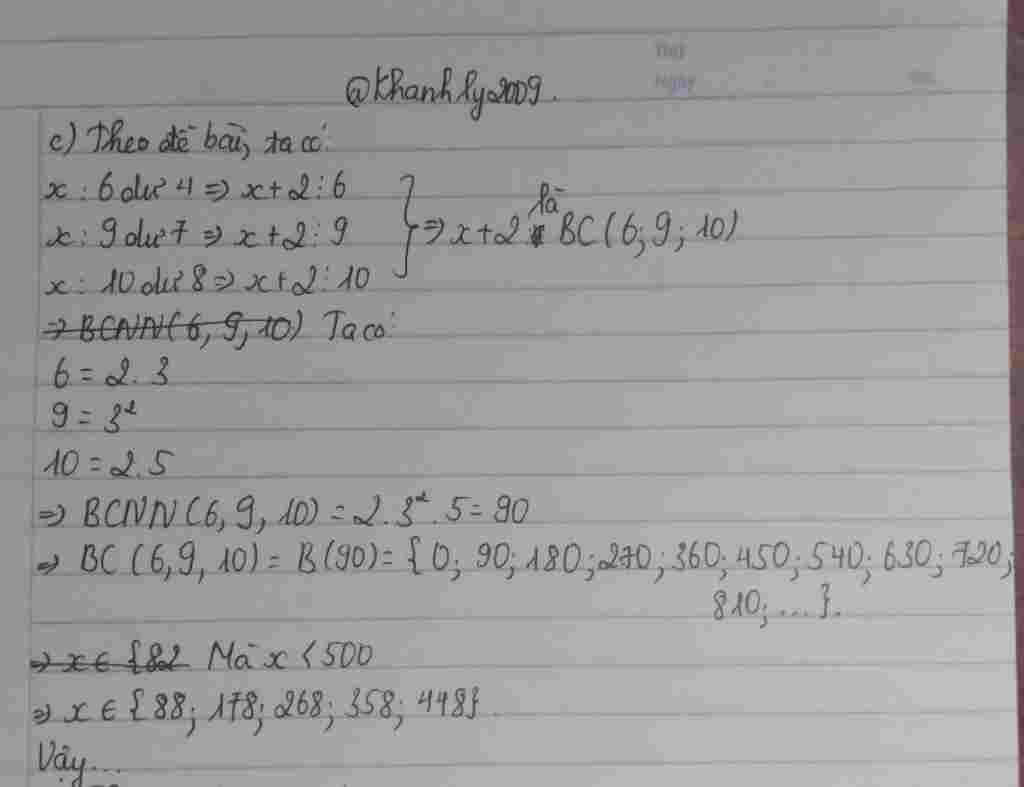 Thứ
Ngày
@Khanhly2009.
c) Theo đề bài, ta có:
x : 6 dư 4 => x+2 ⋮ 6
x : 9 dư 7 => x+2 ⋮ 9
x : 10 dư 8 => x+2 ⋮ 10
} => x+2 là BC(6; 9; 10)
=> BCNN(6, 9, 10) Ta có:
6 = 2.3
9 = 3²
10 = 2.5
=> BCNN(6, 9, 10) = 2.3².5 = 90
=> BC(6,9, 10) = B(90) = {0; 90; 180; 270; 360; 450; 540; 630; 720;
810; ...}.
=> x ∈ {82 Mà x < 500
=> x ∈ {88; 178; 268; 358; 448}
Vậy...